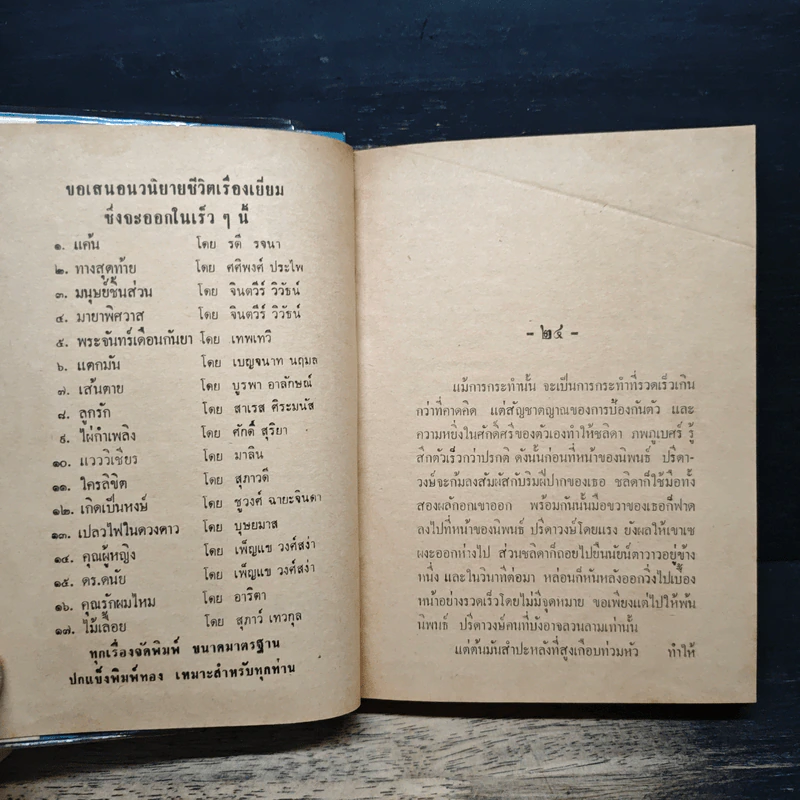 ขอเสนอนวนิยายชีวิตเรื่องเยี่ยม
ซึ่งจะออกในเร็ว ๆ นี้
๑. แค้น โดย รตี รจนา
๒. ทางสุดท้าย โดย ศศิพงศ์ ประไพ
๓. มนุษย์ชิ้นส่วน โดย จินตวีร์ วิวัธน์
๔. มายาพิศวาส โดย จินตวีร์ วิวัธน์
๕. พระจันทร์เดือนกันยา โดย เทพเทวี
๖. แตกมัน โดย เบญจนาท นฤมล
๗. เส้นตาย โดย บูรพา อาลักษณ์
๘. ลูกรัก โดย สาเรส ศิระมนัส
๙. ไผ่กำเพลิง โดย ศักดิ์ สุริยา
๑๐. แวววิเชียร โดย มาลิน
๑๑. ใครลิขิต โดย สุภาวดี
๑๒. เกิดเป็นหงษ์ โดย ชูวงศ์ ฉายะจินดา
๑๓. เปลวไฟในดวงดาว โดย บุษยมาส
๑๔. คุณผู้หญิง โดย เพ็ญแข วงศ์สง่า
๑๕. ดร.ดนัย โดย เพ็ญแข วงศ์สง่า
๑๖. คุณรักผมไหม โดย อาริตา
๑๗. ไม้เลื้อย โดย สุภาว์ เทวกุล
ทุกเรื่องจัดพิมพ์ ขนาดมาตรฐาน
ปกแข็งพิมพ์ทอง เหมาะสำหรับทุกท่าน
- ๒๔ -
แม้การกระทำนั้น จะเป็นการกระทำที่รวดเร็วเกิน
กว่าที่คาดคิด แต่สัญชาตญาณของการป้องกันตัว และ
ความหยิ่งในศักดิ์ศรีของตัวเองทำให้ชลิดา ภพภูเบศร์ รู้
สึกตัวเร็วกว่าปรกติ ดังนั้นก่อนที่หน้าของนิพนธ์ ปรีดา-
วงษ์จะก้มลงสัมผัสกับริมฝีปากของเธอ ชลิดาก็ใช้มือทั้ง
สองผลักอกเขาออก พร้อมกันนั้นมือขวาของเธอก็ฟาด
ลงไปที่หน้าของนิพนธ์ ปรีดาวงษ์โดยแรง ยังผลให้เขาเซ
ผงะออกห่างไป ส่วนชลิดาก็ถอยไปยืนนัยน์ตาวาวอยู่ข้าง
หนึ่ง และในวินาทีต่อมา หล่อนก็หันหลังออกวิ่งไปเบื้อง
หน้าอย่างรวดเร็วโดยไม่มีจุดหมาย ขอเพียงแต่ไปให้พ้น
นิพนธ์ ปรีดาวงษ์คนที่บังอาจลวนลามเท่านั้น
แต่ต้นมันสำปะหลังที่สูงเกือบท่วมหัว ทำให้